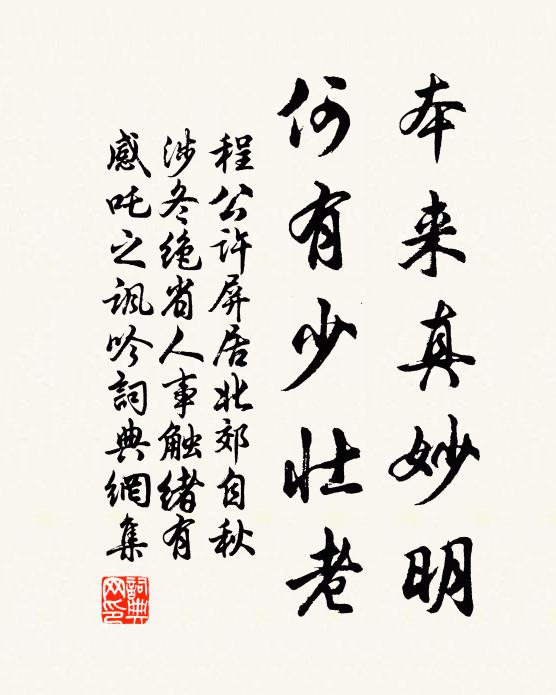 本来真妙明
何有少壮老
程公许屏居北郊自秋
涉冬绝省人事触绪有
感吒之讽吟詞典網集
詞典
网印